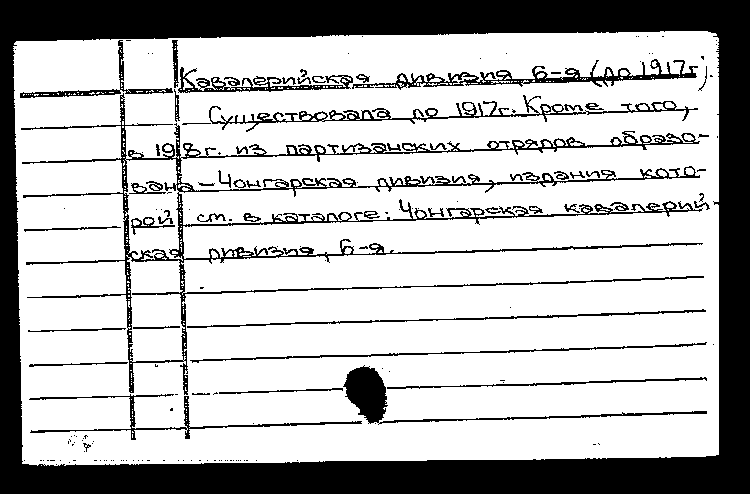 Кавалерийская дивизия, 6-я (до 1917г).
Существовала до 1917г. Кроме того,
в 1918г. из партизанских отрядов образо-
вана - Чонгарская дивизия, издания кото-
рой см. в каталоге: Чонгарская кавалерий-
ская дивизия, 6-я.